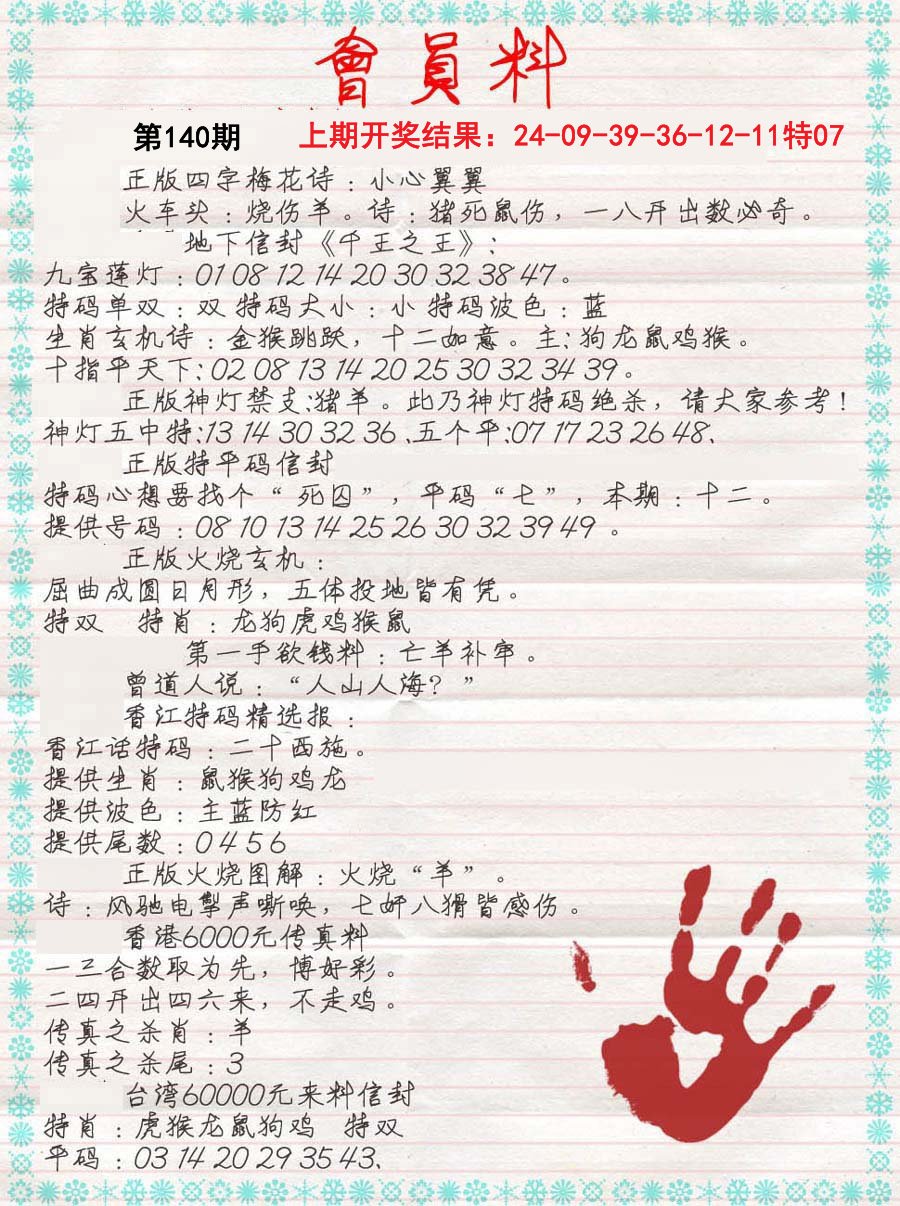 會員料
第140期 上期开奖结果：24-09-39-36-12-11特07
正版四字梅花诗：小心翼翼
火车头：烧伤羊。诗：猪死鼠伤，一八开出数必奇。
地下信封《千王之王》：
九宝莲灯：01 08 12 14 20 30 32 38 47。
特码单双：双 特码大小：小 特码波色：蓝
生肖玄机诗：金猴跳跃，十二如意。主：狗龙鼠鸡猴。
十指平天下：02 08 13 14 20 25 30 32 34 39。
正版神灯禁支：猪羊。此乃神灯特码绝杀，请大家参考！
神灯五中特：13 14 30 32 36、五个平：07 17 23 26 48、
正版特平码信封
特码心想要找个“死囚”，平码“七”，本期：十二。
提供号码：08 10 13 14 25 26 30 32 39 49 。
正版火烧玄机：
屈曲成圆日月形，五体投地皆有凭。
特双 特肖：龙狗虎鸡猴鼠
第一手欲钱料：亡羊补牢。
曾道人说：“人山人海？”
香江特码精选报：
香江话特码：二十西施。
提供生肖：鼠猴狗鸡龙
提供波色：主蓝防红
提供尾数：0 4 5 6
正版火烧图解：火烧“羊”。
诗：风驰电掣声嘶唤，七奸八猾皆感伤。
香港6000元传真料
一三合数取为先，博好彩。
二四开出四六来，不走鸡。
传真之杀肖：羊
传真之杀尾：3
台湾60000元来料信封
特肖：虎猴龙鼠狗鸡 特双
平码：03 14 20 29 35 43、